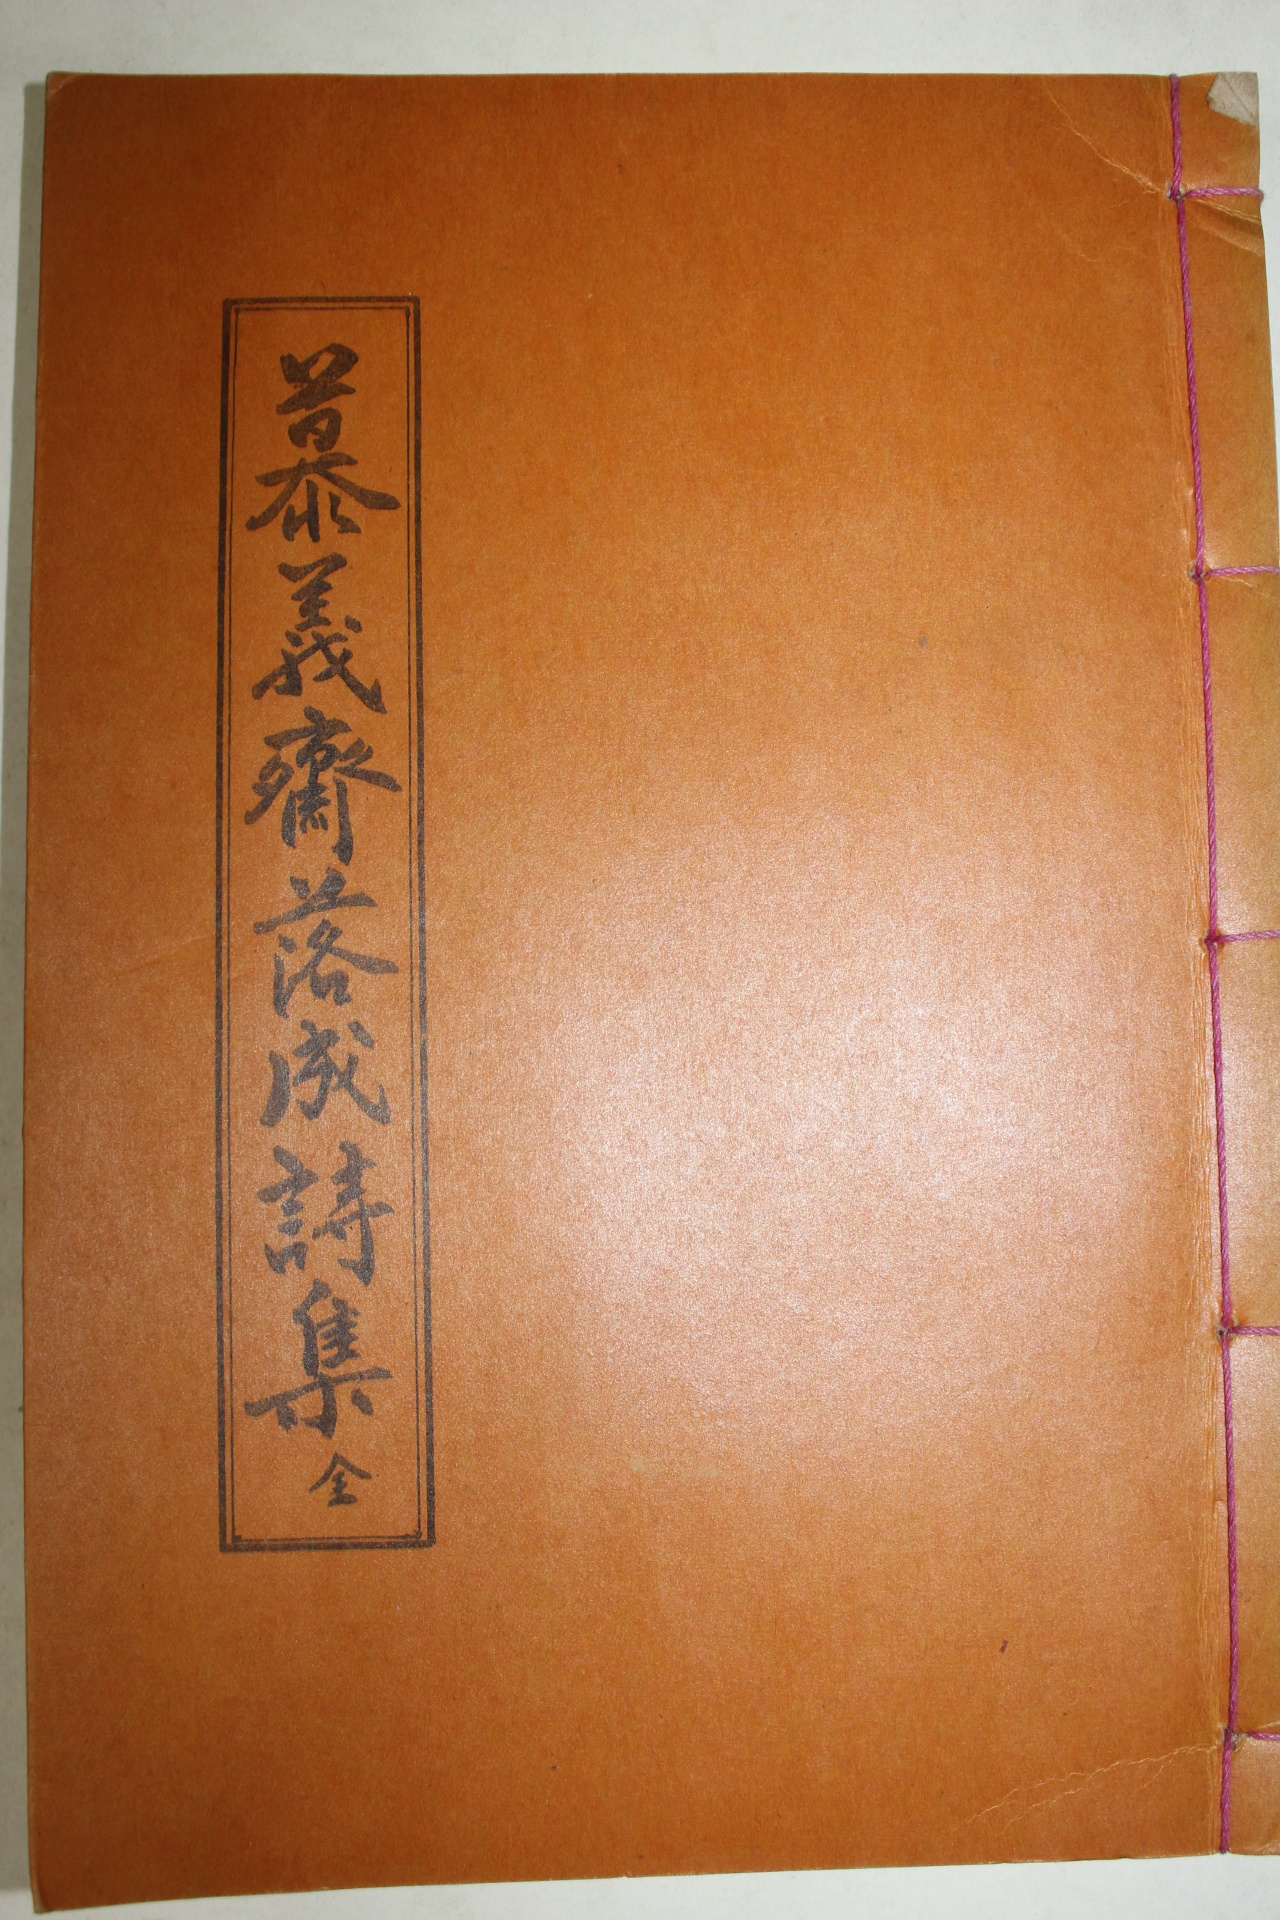 慕義齋落成詩集 全